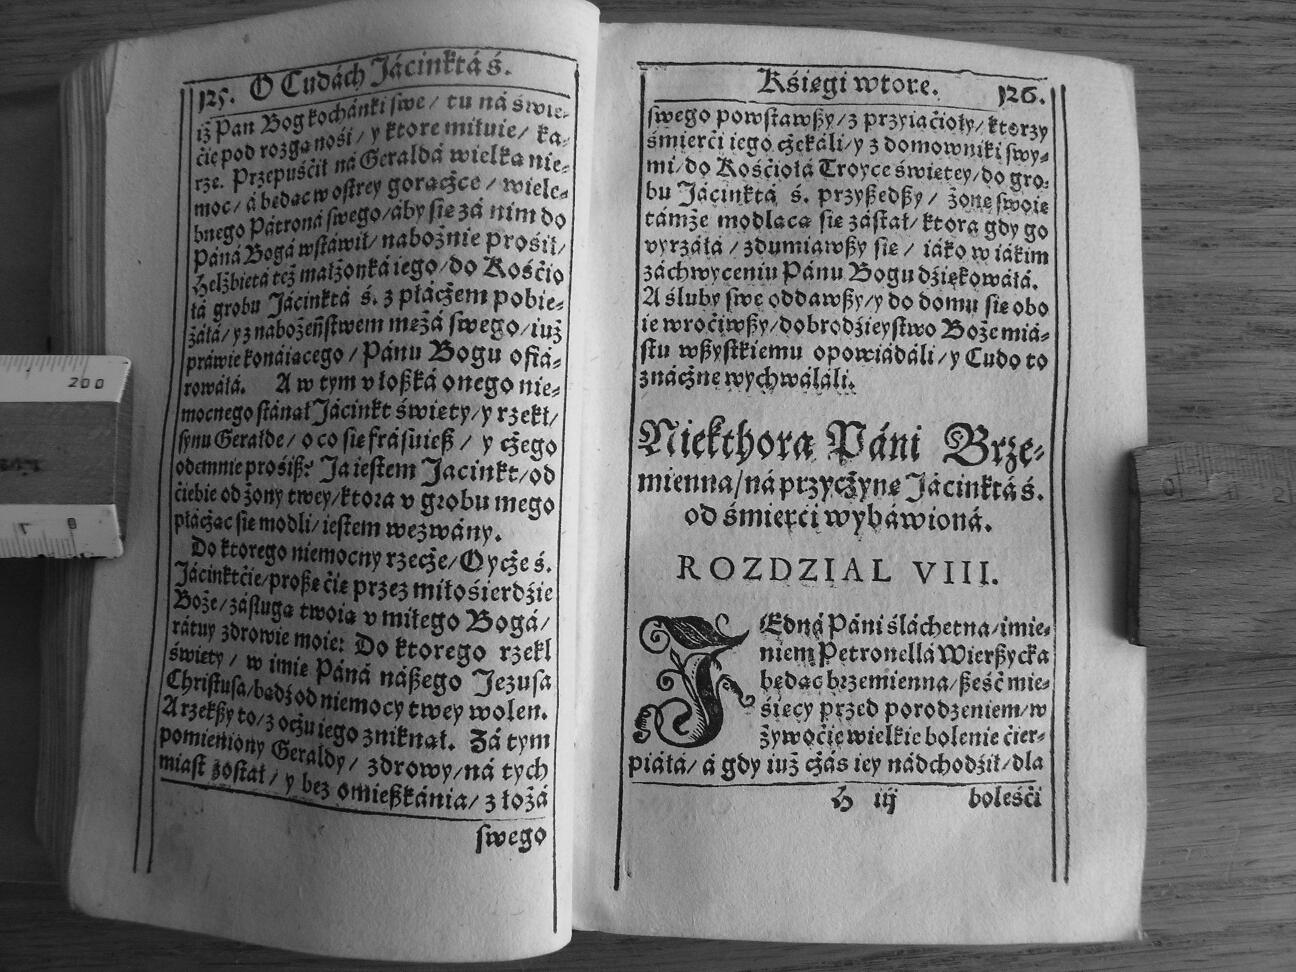 125. O Cudách Jácinktá ś.
iż Pan Bog kochánki swe / tu ná świe-
cie pod rozgą nośi / y ktore miłuie / ka-
rze. Przepuśćił ná Geraldá wielką nie-
moc / á będąc w ostrey gorączce / wiele-
bnego Pátroná swego / áby się zá nim do
Páná Bogá wstáwił / nabożnie prośił /
Helżbietá też małżonká iego / do Kośćio
łá grobu Jácinktá ś. z płáczem pobie-
żáłá / y z nabożeństwem mężá swego / iuż
práwie konáiącego / Pánu Bogu ofiá-
rowáłá. A w tym v łoßká onego nie-
mocnego stánął Jácinkt święty / y rzekł /
synu Geralde / o co się frásuieß / y czego
odemnie prośiß? Ja iestem Jacinkt / od
ćiebie od żony twey / ktora v grobu mego
płácząc się modli / iestem wezwány.
Do ktorego niemocny rzecze / Oycze ś.
Jácinktćie / proßę ćię przez miłośierdźie
Boże / zásługą twoią v miłego Bogá /
rátuy zdrowie moie: Do ktorego rzekl
święty / w imię Páná náßego Jezusa
Christusa / bądź od niemocy twey wolen.
A rzekßy to / z oczu iego zniknął. Zá tym
pomieniony Geraldy / zdrowy / ná tych
miast został / y bez omießkánia / z łożá
swego
Kśięgi wtore. 126.
swego powstawßy / z przyiaćioły / ktorzy
śmierći iego czekáli / y z domowniki swy-
mi / do Kośćiołá Troyce świętey / do gro-
bu Jácinktá ś. przyßedßy / żonę swoię
támże modlącą się zástał / ktora gdy go
vyrzáłá / zdumiawßy się / iáko w iákim
záchwyceniu Pánu Bogu dźiękowáłá.
A śluby swe oddawßy / y do domu się obo
ie wroćiwßy / dobrodźieystwo Boże miá-
stu wßystkiemu opowiádáli / y Cudo to
znáczne wychwáláli.
Niekthora Páni Brze-
mienna / ná przyczynę Jácinktá ś.
od śmierći wybáwioná.
ROZDZIAL VIII.
JEdná Páni ślachetna / imie-
niem Petronellá Wierßycka
będąc brzemienna / ßeść mie-
śięcy przed porodzeniem / w
żywoćie wielkie bolenie ćier-
piáłá / á gdy iuż czás iey nádchodźił / dla
H iij boleśći